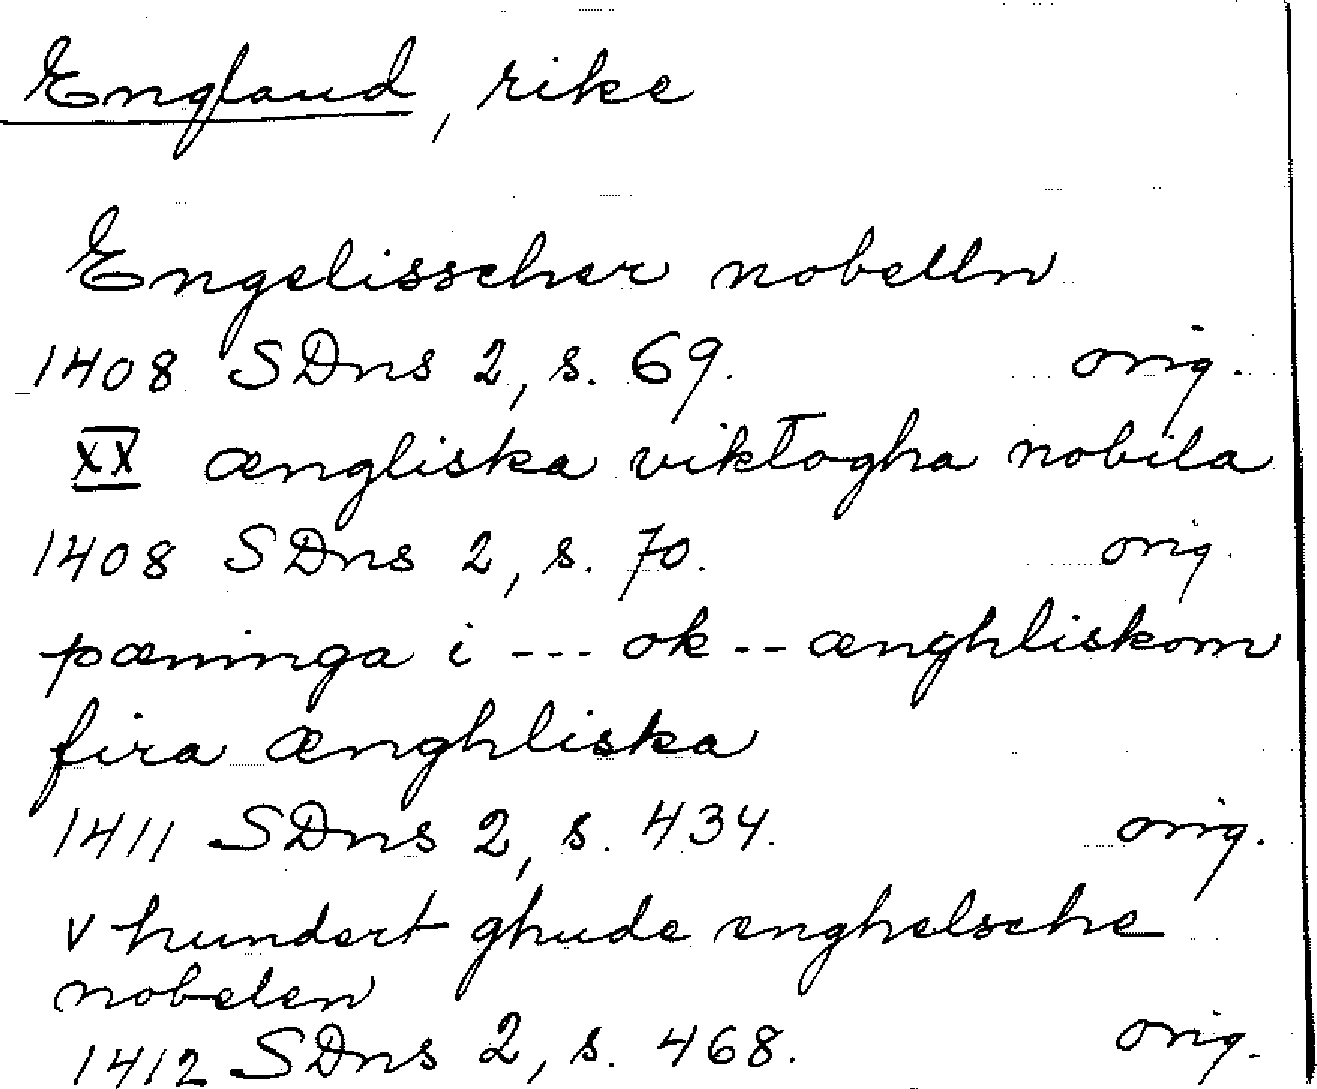 England, rike
Engelisscher nobelln
1408 SDns 2, s. 69. orig.
XX ængliska viktogha nobila
1408 SDns 2, s. 70. orig.
pæninga i --- ok -- ænghliskom
fira ænghliska
1411 SDns 2, s. 434. orig.
v hundert ghude enghelsche
nobelen
1412 SDns 2, s. 468. orig.